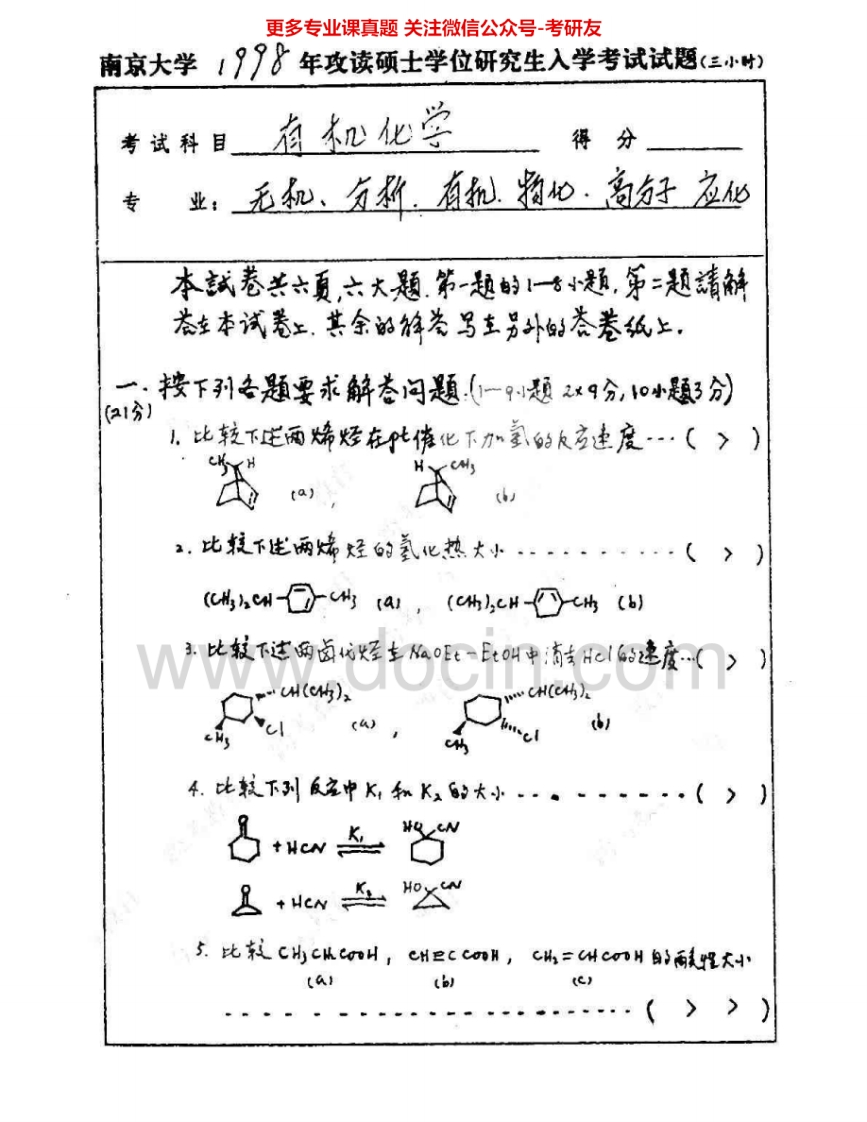 更多专业课真题 关注微信公众号-考研友
南京大学 1998 年攻读硕士学位研究生入学考试试题(三小时)
考试科目 有机化学 得 分
专 业: 无机、分析、有机、物化、高分子 应化
本試卷共六頁,六大題.第一题的1—8小題,第二题請解
荅在本试卷上.其余的解荅写在另外的荅卷纸上.
一.按下列各题要求解荅问题.(1—9小题 2x9分,10小题3分)
(21分)
1. 比较下述两烯烃在pt催化下加氢的反应速度…( > )
CH3 H (a), H CH3 (b)
2. 比较下述两烯烃的氢化热大小 - - - - - - - - - - - ( > )
(CH3)2CH CH3 (a), (CH3)2CH CH3 (b)
www.docin.com
3. 比较下述两卤代烃在NaOEt-EtOH中消去HCl的速度…( > )
CH(CH3)2 Cl CH3 (a), CH(CH3)2 Cl CH3 (b)
4. 比较下列反应中K1和K2的大小 - - - - - - - - - ( > )
O + HCN K1 HO CN
O + HCN K2 HO CN
5. 比较 CH3CH2COOH, CH≡CCOOH, CH2=CHCOOH的酸性大小
(a) (b) (c)
- - - - - - - - - - - - - - - - - - - - - - - - ( > > )